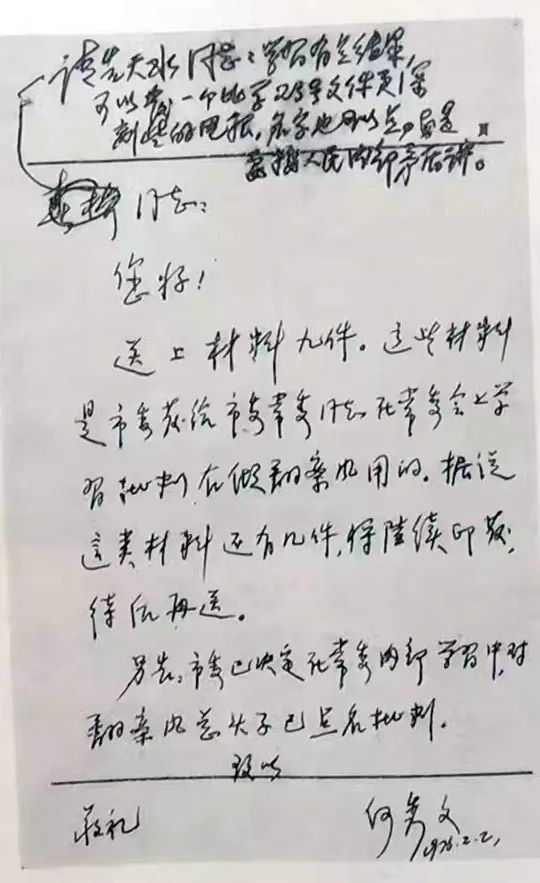 请告天水同志：学习有些结果，
可以发一个比学23号文件更深
刻些的电报，名字也可以点，
人民内部矛盾讲。
同志：
您好！
送上材料九件。这些材料
是市委发给市委常委同志在常委会上学
习批判右倾翻案风用的。据说
这类材料还有几件，将陆续印发，
待后再送。
另告，市委已决定在常委内部学习中，对
翻案风总头子已点名批判。
致以
敬礼
何秀文
1976.2.2，